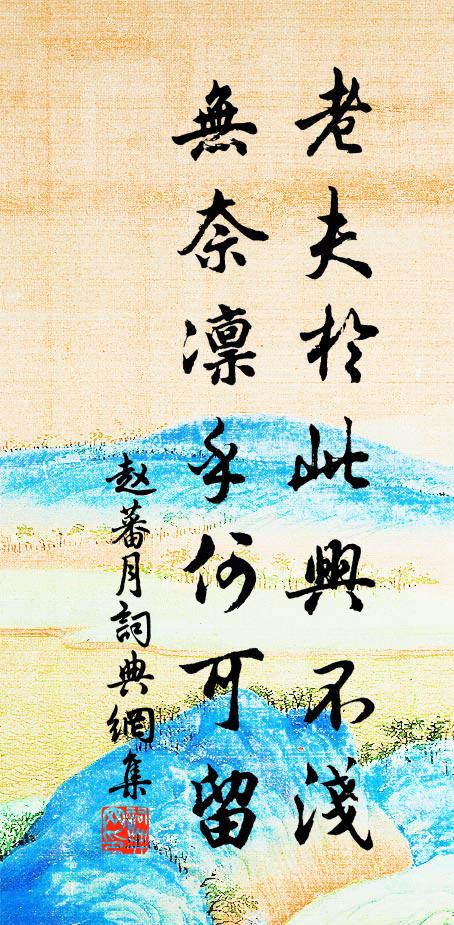 老夫於此興不淺
無奈凛乎何可留
赵蕃月詞典網集